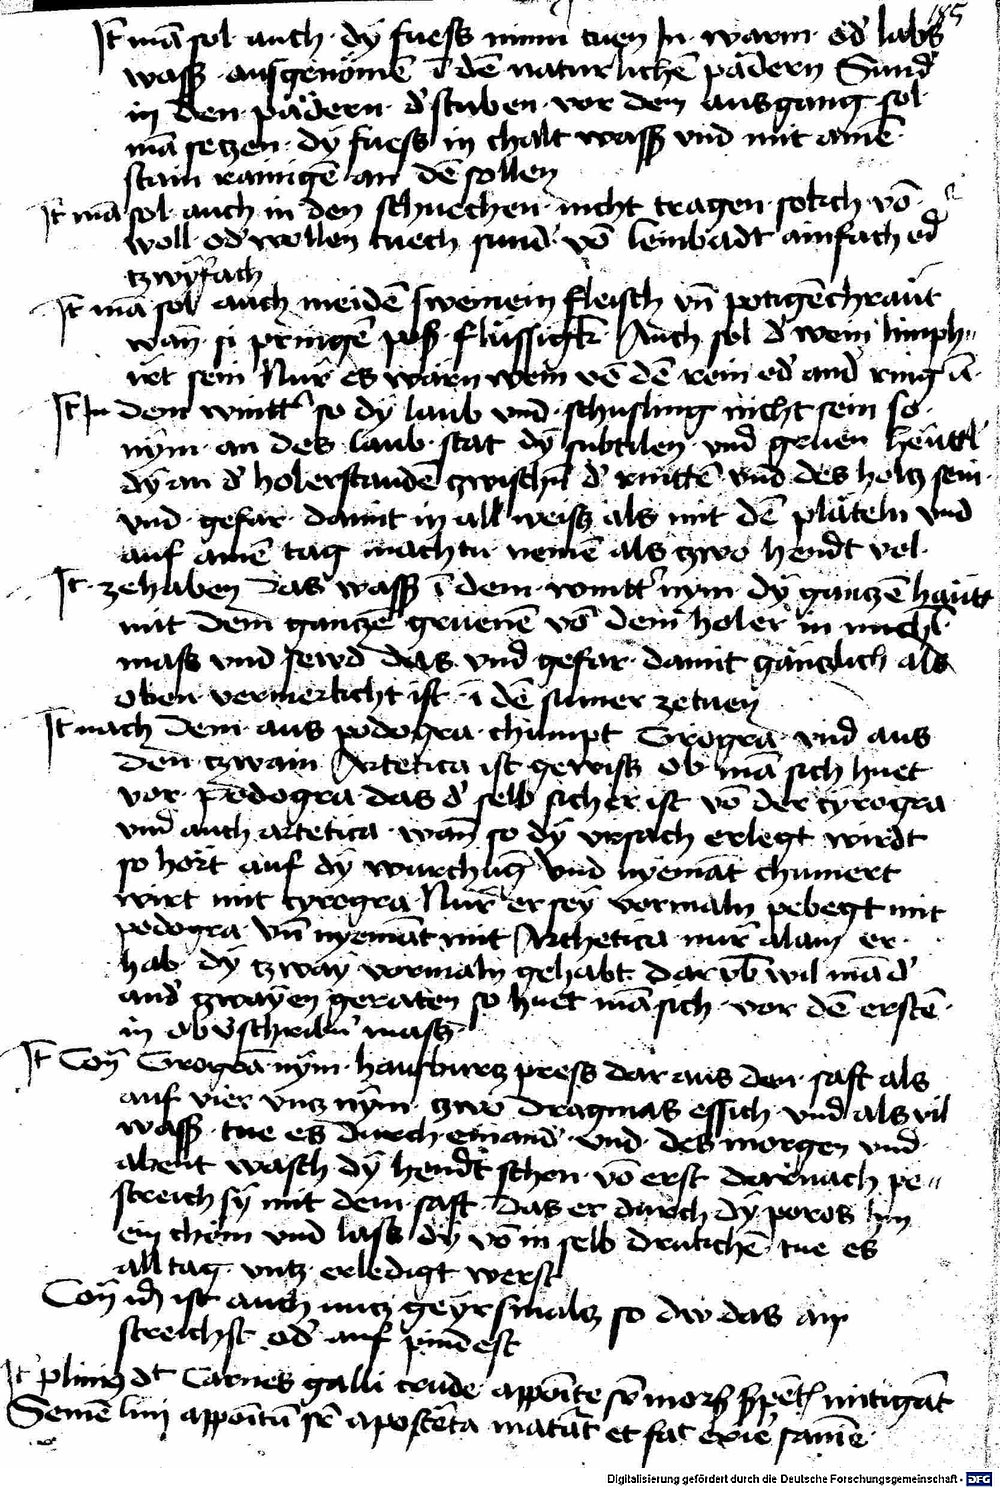 185
It mā sol auch dy fuess nimm tuen In warm od' labs
wass' ausgenömē ī dē naturlichē pädern Sund'
in den pädern d' stuben vor dem ausgang sol
mā seczen dy fuess in chalt wass' vnd mit amē
stain rainigē an dē sollen
It mā sol auch in den schuechen nicht tragen solich vō
woll od' wollen tuech sund' vō leinbadt ainfach od'
tzwyfach
It mā sol auch meidē sweinein fleisch vn̄ potigēchraüt
wan̄ si pringē pos' flüssigk Auch sol d' wein limph
irt sein Nür es wärn wein vō dē rein od' and' ring ū
It In dem wintt' so dy laub vnd schusling nicht sein so
nym an des laub stat dy subtilen vnd gruen heuttl
dy an d' holerstaudē zwischn̄ d' rinttē vnd des holtz sein
vnd gefar damit in all weisz als mit dē pläteln vnd
auf amē tag machtu nemē als zwo hendt vol
It zehaben das wass' ī dem wintt' nym dy ganczē haütt
mit dem ganczē gruenē vō dem holer in
mass vnd sewd das vnd gefar damit gänczlich als
oben vermerkcht ist ī dē sumer zetuen
It nach dem aus podogra chumpt Cirogra vnd aus
den czwain Artetica ist gewiss ob mā sich huet
vor podogra das d' selb sicher ist vō der cyrogra
vnd auch artetica wan̄ so dy vrsach erlegt wirdt
so hört auf dy würchūg Vnd nyemāt chumert
wirt mit cyrogra Nür er sey vormaln pebegt mit
podogra vn̄ nyemāt mit Arthetica nür alain er
hab dy tzway vormaln gehabt darvb̄ wil mā d'
and' zwayen geraten so huet mā sich vor dē erstē
in obv̄schribn̄ mass
It Con̄ Cirogrā nym hauswurcz press dar aus den saft als
auf vier vncz nym czwo dragmas essich vnd als vil
wass' tue es durch einand' vnd des morgen vnd
abent wasch dy hendt schon vō erst darnach pe
streich sy mit dem saft das er durch dy poros hin
ein chöm vnd lass dy vō in selb drukchē tue es
all tag vntz erledigt werst
Con̄ id' ist auch nutz geyrsmalz so dw das an
streichst od' auf pindest
It plini' dt Carnes galli crude apposite sr̄ mors' s'pēt' mitigāt
Semē lini appoitū sr̄ apostēta maturāt et fac exire saniē
Digitalisierung gefördert durch die Deutsche Forschungsgemeinschaft - DFG